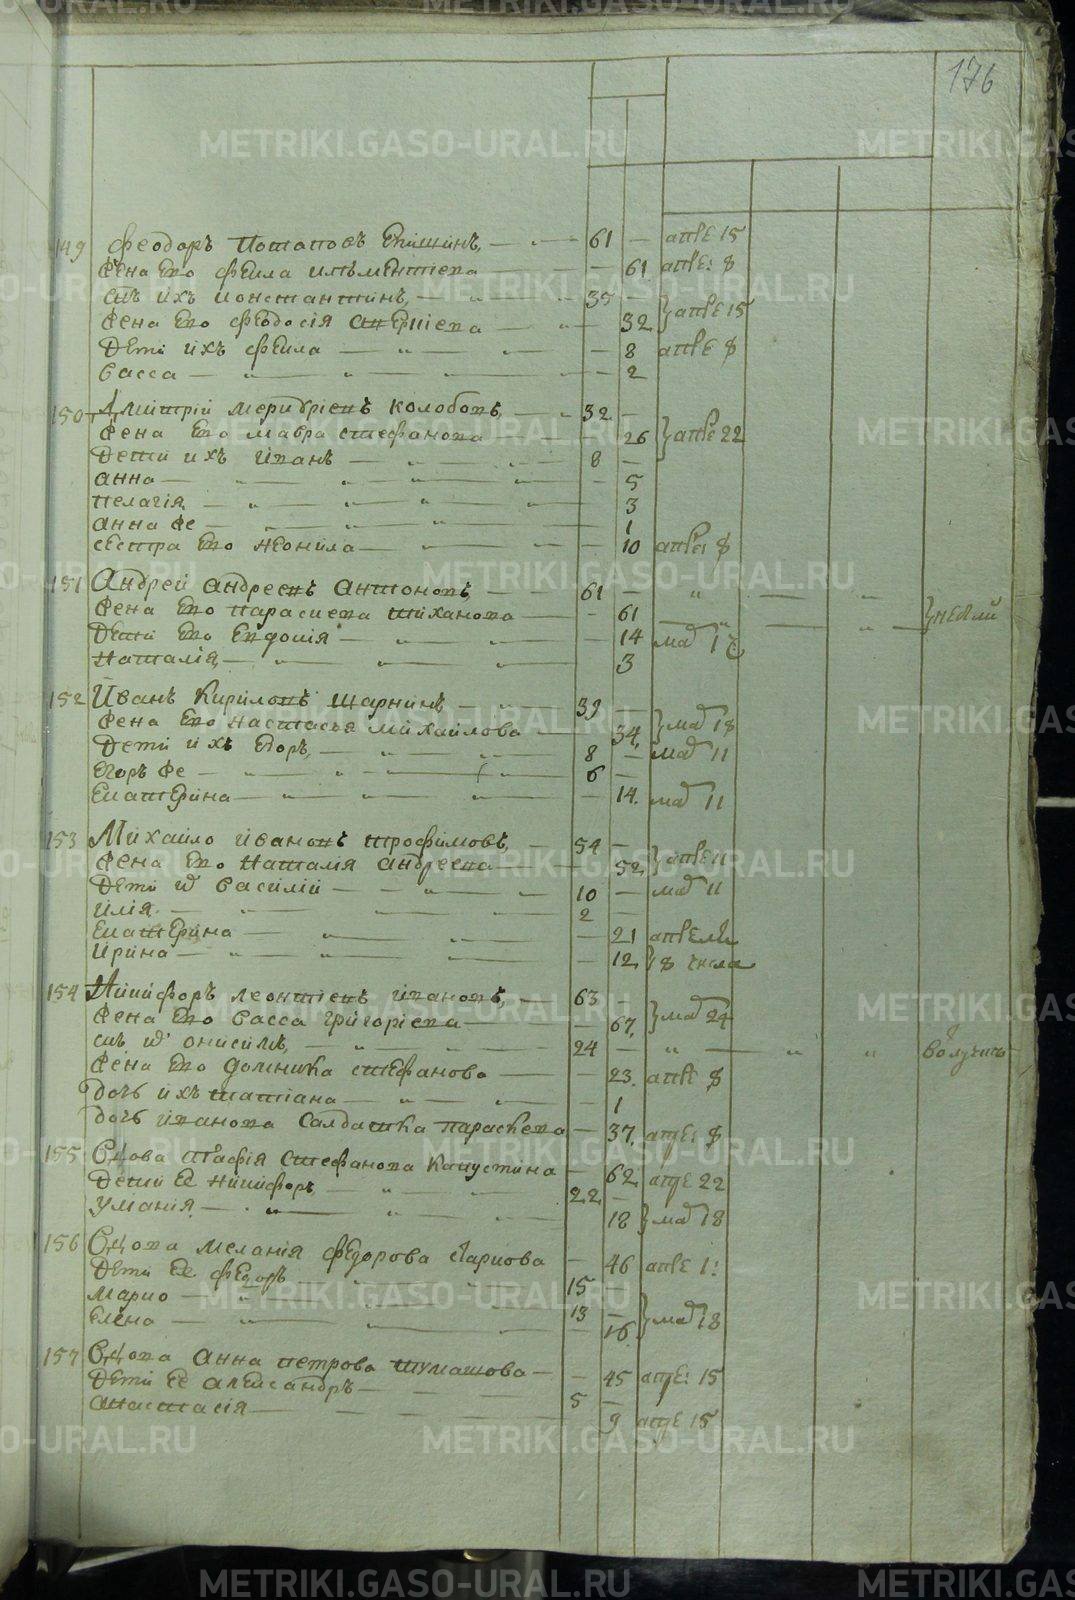 176
149 Феодоръ Потаповъ Епишинъ 61 — апре 15
жена ево Феила Илъментиева — 61 апре: 8
снъ ихъ Константинъ 35 —
жена ево Феодосія Андриева — 32 апре 15
Дети ихъ Феила — 8 апре 8
Васса — 2
150 Дмитрій Колобовъ 32 —
жена ево Мавра Стефанова — 26 апре 22
Дети ихъ Иванъ 8 —
Анна — 5
Пелагія — 3
Анна же — 1
сестра ево Неонила — 10 апре: 8
151 Андрей Андреевъ Антоновъ 61 —
жена ево Параскева — 61
Дети ево Евдокія — 14 маѧ
Наталія — 3
152 Иванъ Кириловъ 39 —
жена ево Настасья Михайлова — 34 маѧ 18
Дети ихъ Егоръ 8 — маѧ 11
Егоръ же 6 —
Екатерина — 14 маѧ 11
153 Михайло Ивановъ Трофимовъ 54 —
жена ево Наталія Андреева — 52 апре 11
Дети их Василій 10 — маѧ 11
Илія 2 —
Екатерина — 21 апрелѧ
Ирина — 12 8 числа
154 Никифоръ Леонтіевъ Ивановъ 63 —
жена ево Васса Григоріева — 67 маѧ 24
снъ их Онисимъ 24 —
жена ево Домника Стефанова — 23 апре 8
Дочь ихъ Татіана — 1
Дочь Иванова Салдатка Параскева — 37 апре: 8
155 Вдова Стефанова Капустина — 62 апре 22
Дети ее Никифоръ 22 —
Уліанія — 18 маѧ 18
156 Вдова Меланія Федорова — 46 апре 1:
Дети ее Федоръ 15
Марко 13 —
Елена — 16 маѧ 18
157 Вдова Анна Петрова Тумашова — 45 апре: 15
Дети ее Александръ 5 —
Анастасія — 9 апре 15
METRIKI.GASO-URAL.RU